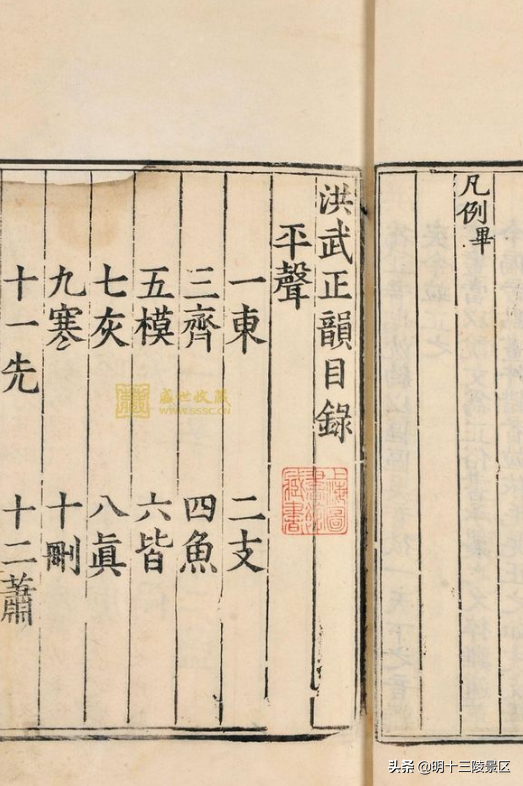 凡例畢
洪武正韻目錄
上海圖書館藏書
平聲
一東 二支
三齊 四魚
五模 六皆
七灰 八眞
九寒 十刪
十一先 十二蕭
盛世收藏
WWW.SSSC.CN
头条 @明十三陵景区